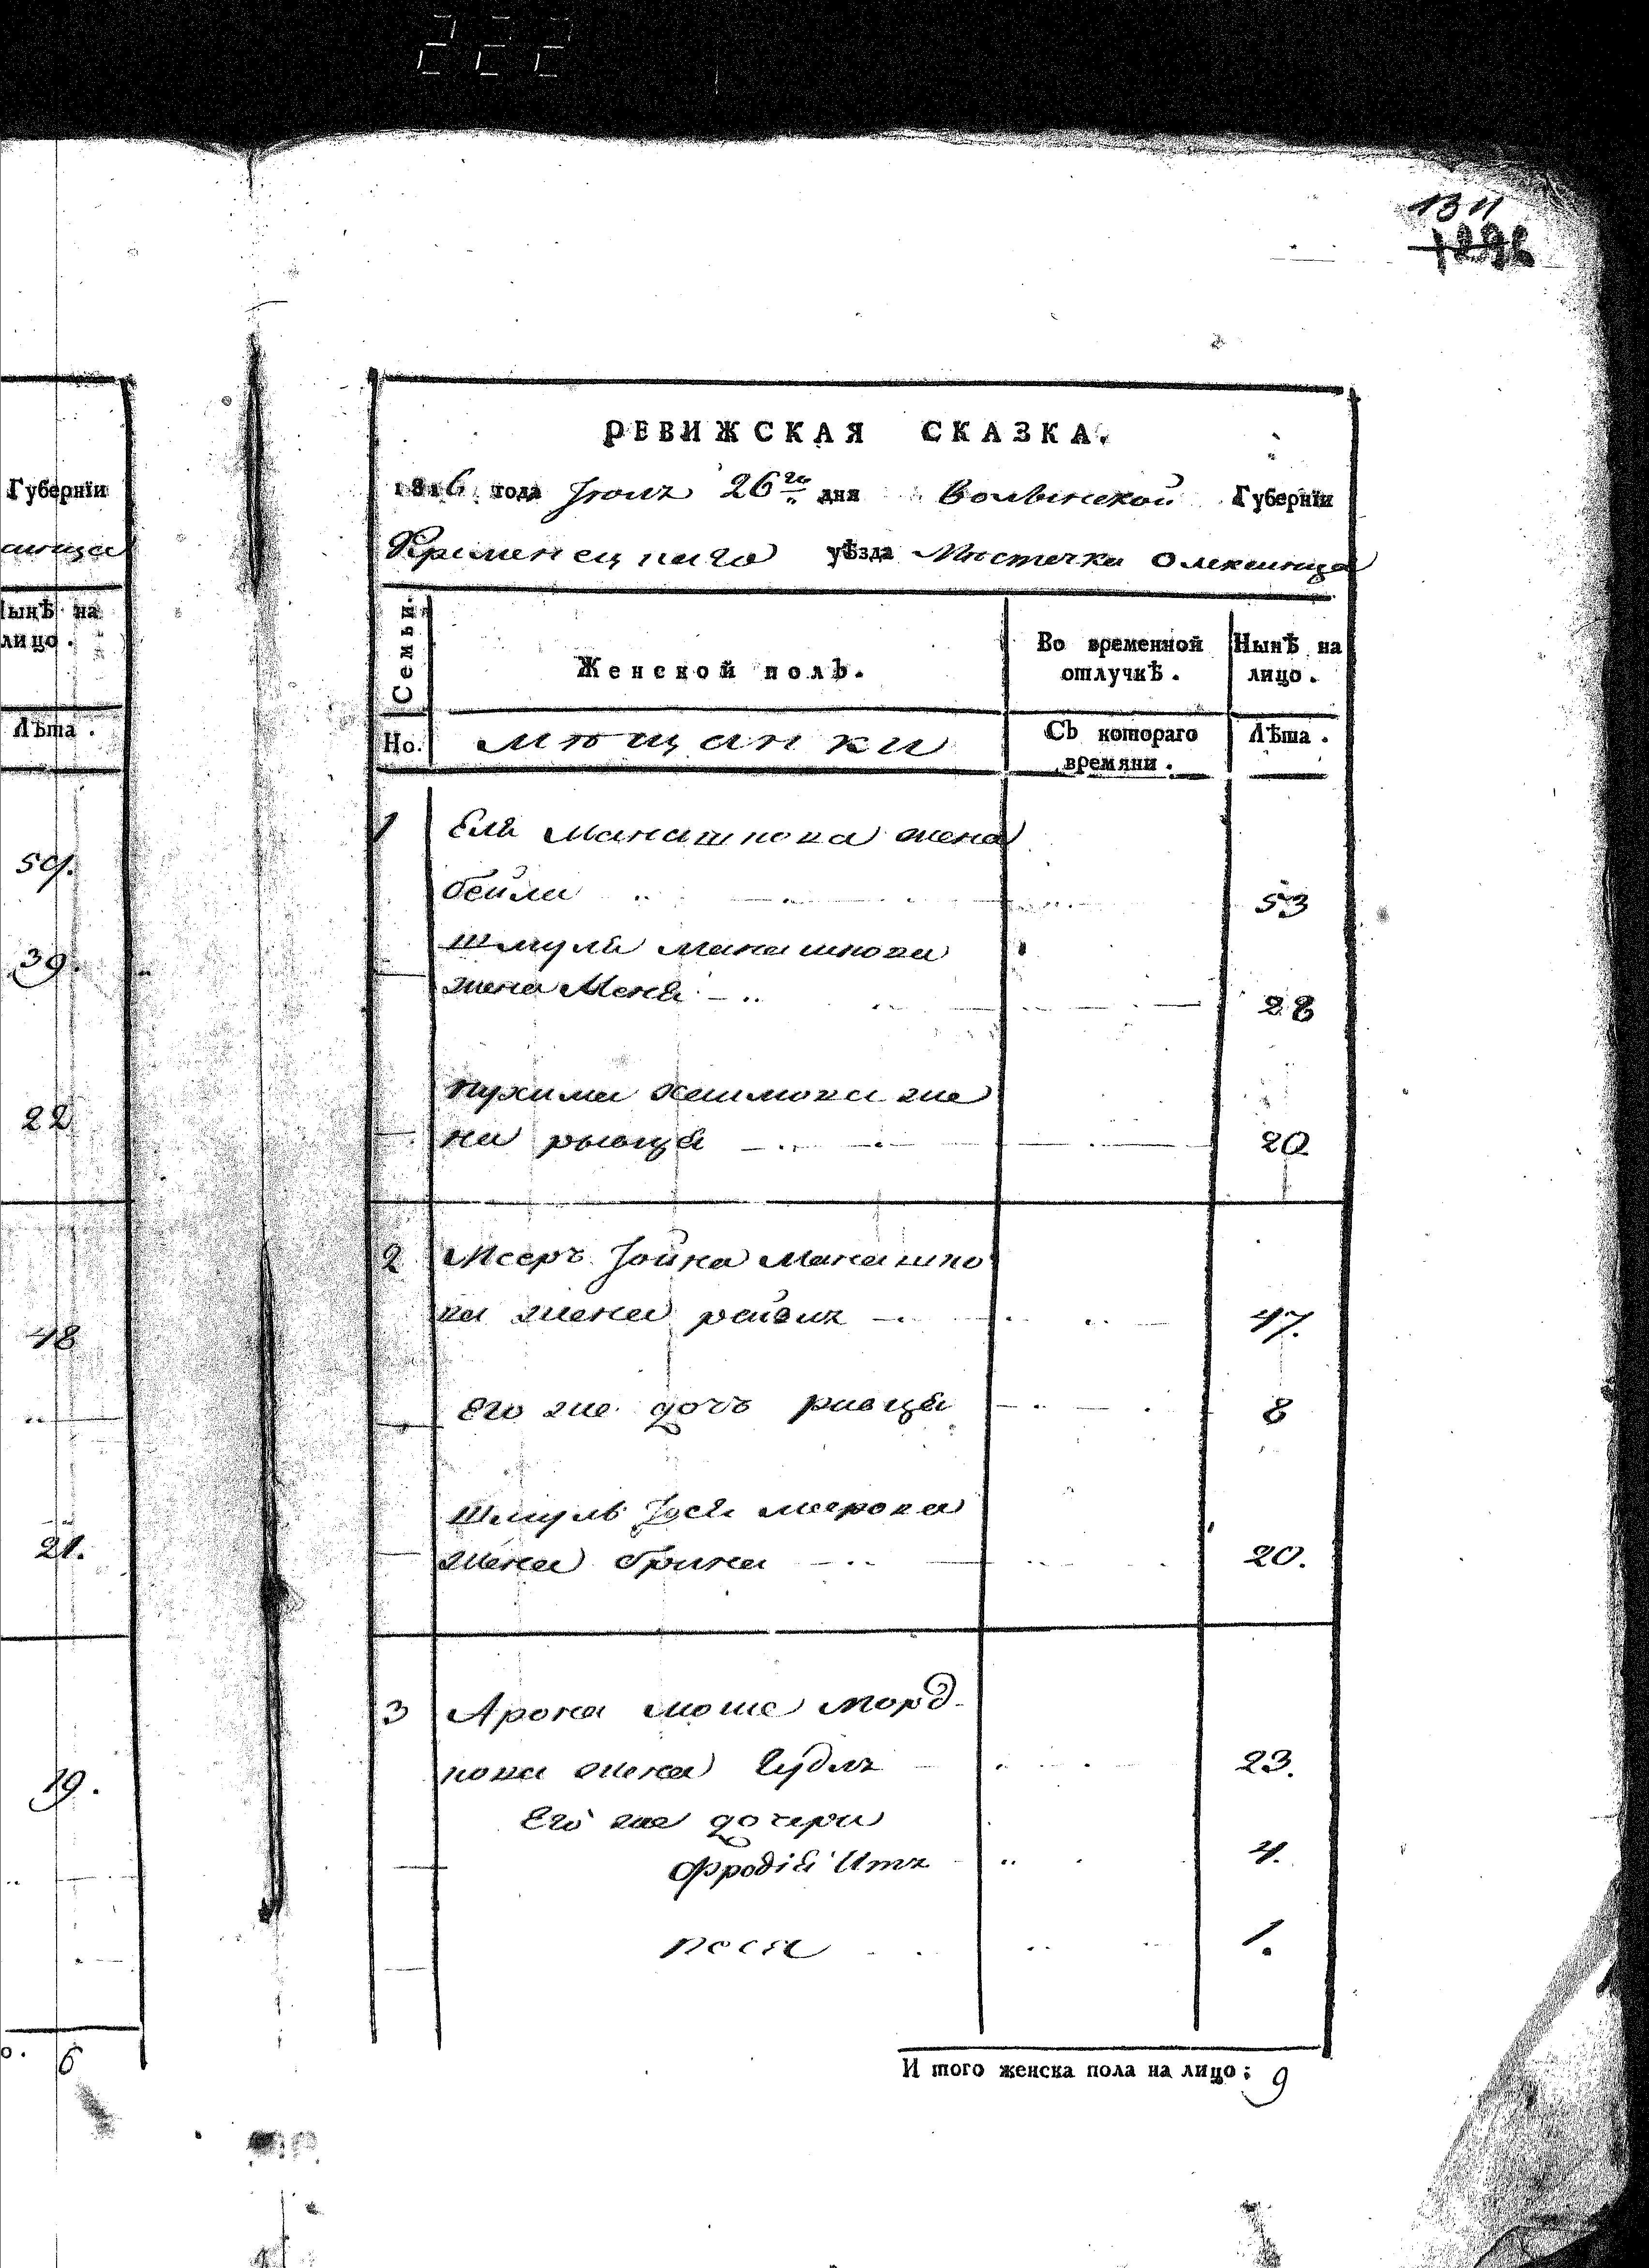 222
1311
Губернїи
аница
Нынѣ на
лицо.
Лѣта.
39.
22
48
21.
19.
о. 6
РЕВИЖСКАЯ СКАЗКА.
1816 года Июля 26го дня Волынской Губернїи
Кременецкаго уѣзда Мистечка Олексинца
Семьи.
Женской полъ.
Во временной
отлучкѣ.
Нынѣ на
лицо.
Но.
мѣщанки
Съ котораго
времяни.
Лѣта.
1 Еля Манашкова жена
бейла 53
Шмуля Манашкова
жена Меня 28
Нухима Хаимова же
на ривця 20
2 Мееръ Иойна Манашко
ва жена райзя 47.
Его же дочь ривця 8
Шмуль Иося меерова
жена брина 20.
3 Арона моше Морд
кова жена Гудля 23.
Его же дочери
Фродія Итя 4.
песя 1.
И того женска пола на лицо: 9